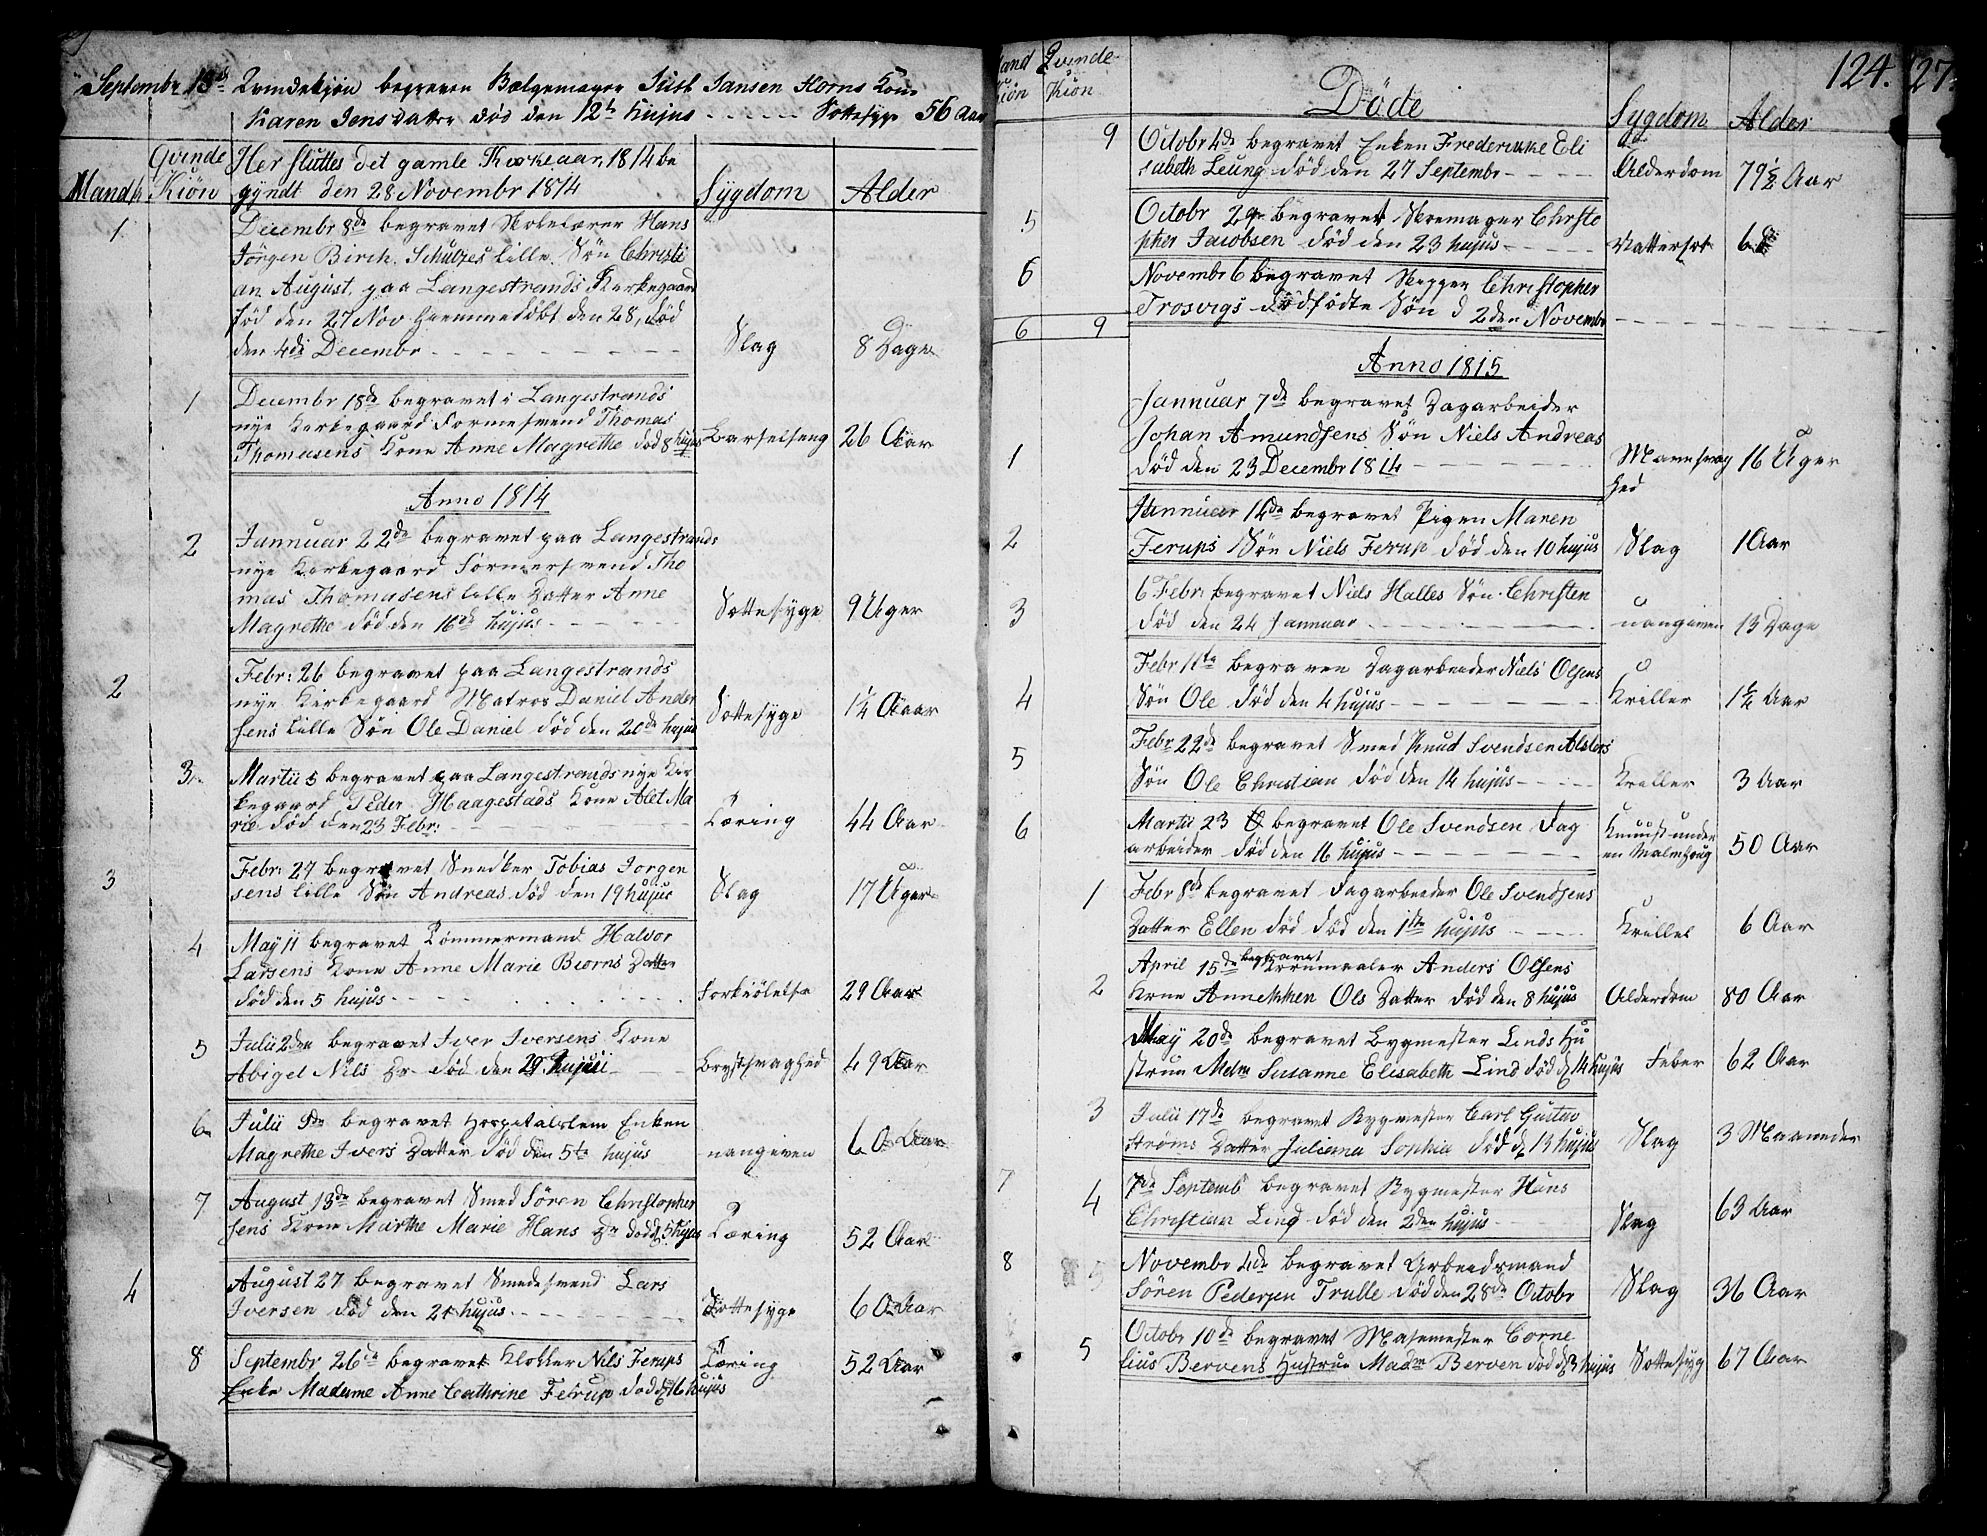 Septembr 13de Qvindekjøn begraven Bælgemager Jansen Horns Kone
Karen Jens Datter død den 12te hujus - - - - Sottesyge 56 Aar
Mandk Qvinde Kiøn
Her sluttes det gamle Kirkeaar, 1814 be
gyndt den 28 Novembr 1814
Sygdom Alder
1. Decembr 8de begravet Skolelærer Hans
Jörgen Birch Schultzes lille Søn Christi
an August, paa Langestrands Kirkegaard
född den 27 Nov hiemmedøbt den 28, død
den 4de Decembr - - - Slag 8 Dage
1 Decembr 18de begravet i Langestrands
nye Kirkegaard Formersvend Thomas
Thomasens Kone Anne Magrethe død 8 hujus Barselseng 26 Aar
Anno 1814
2 Jannuar 22de begravet paa Langestrands
nye Kirkegaard Formersvend Tho
mas Thomasens lille Datter Anne
Magrethe död den 16de hujus - - - Sottesyge 9 Uger
2 Febr: 26 begravet paa Langestrands
nye Kirkegaard Matros Daniel Ander
sens lille Søn Ole Daniel död den 20de hujus Sottesyge 1¼ Aar
3. Martii 5 begravet paa Langestrands nye Kir
kegaard Peder Haagestads Kone Alet Ma
rie död den 23 Febr: - - - Tæring 44 Aar
3 Febr: 27 begravet Snedker Tobias Jorgen
sens lille Søn Andreas död den 19 hujus Slag 17 Uger
4 May 11 begravet Tømmermand Halvor
Larsens Kone Anne Marie Biorns Datter
död den 5 hujus - - - Forkiølelse 29 Aar
5 Julii 2den begravet Iver Iversens Kone
Abigel Nils Dr död den 29 Junii - - Brystsvaghed 49 Aar
6 Julii 9de begravet Hospitalslem Enken
Magrethe Ivers Datter död den 5te hujus uangiven 60 Aar
7 August 13de begravet Smed Sören Christopher
sens Kone Marthe Marie Hans Dr död d 5 hujus Tæring 52 Aar
4 August 27 begravet Smedesvend Lars
Iversen död den 21 hujus - - - Sottesyge 60 Aar
8 Septembr 26de begravet Klokker Nils Ferups
Enke Madame Anne Cathrine Ferup död d 16 hujus Tæring 52 Aar
Mand Kiön Qvinde Kiön
Döde
Sygdom Alder
124. 127.
9 Octobr 4de begravet Enken Frederikke Eli
sabeth Leung död den 27 Septembr - - - Alderdom 79½ Aar
5 Octobr 29 begravet Skomager Christo
pher Jacobsen död den 23 hujus - - - Vattersot 68
6 Novembr 6 begravet Skipper Christopher
Trosvigs dödfödte Søn d 2den Novembr
6 9
Anno 1815
1 Jannuar 7de begravet Dagarbeider
Johan Amundsens Søn Niels Andreas
död den 23 Decembr 1814 - - - Mavesvag
hed 16 Uger
2 Jannuar 14de begravet Pigen Maren
Ferups Søn Niels Ferup död den 10 hujus Slag 1 Aar
3 6 Febr: begravet Niels Halles Søn Christen
död den 24 Jannuar - - - uangiven 13 Dage
4 Febr 11te begraven Dagarbeider Niels Olsens
Søn Ole död den 4 hujus - - - Kriller 1½ Aar
5 Febr 22de begravet Smed Knud Svendsen Alsters
Søn Ole Christian död den 14 hujus - - - Kriller 3 Aar
6 Martii 23 begravet Ole Svendsen Dag
arbeider död den 16 hujus - - - Knuust under
en Malmhaug 50 Aar
1 Febr 8de begravet Dagarbeider Ole Svendsens
Datter Ellen död död den 1ste hujus - - - Kriller 6 Aar
2 April 15de begravet Kornmaaler Anders Olsens
Kone Annekken Ols Datter död den 8 hujus Alderdom 80 Aar
May 20de begravet Bygmester Linds Hu
strue Mdm Susanne Elisabeth Lind död d 14 hujus Feber 62 Aar
3 Julii 17de begravet Bygmester Carl Gustav
Ströms Datter Julianna Sophia död d 13 hujus Slag 3 Maaneder
7 4 7de Septemb begravet Bygmester Hans
Christian Lind död den 2den hujus - Slag 63 Aar
8 5 Novembr 4de begravet Arbeidsmand
Sören Pedersen Trulle död den 28de Octobr Slag 36 Aar
5 Octobr 10de begravet Masmester Corne
lius Bervens Hustrue Madm Berven död d 3 hujus Sottesyg 67 Aar